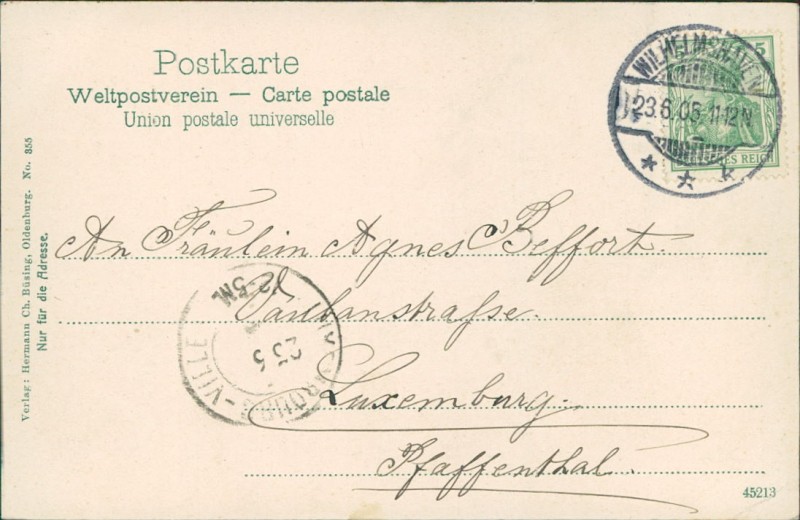 Postkarte
Weltpostverein — Carte postale
Union postale universelle
5
WILHELMSHAVEN
23.6.05.11-12N
* * k
ES REICH
An Fräulein Agnes Beffort.
Vaubanstrasse.
Luxemburg.
Pfaffenthal.
12-5M.
-VILLE
Verlag: Hermann Ch. Büsing, Oldenburg. No. 355
Nur für die Adresse.
45213